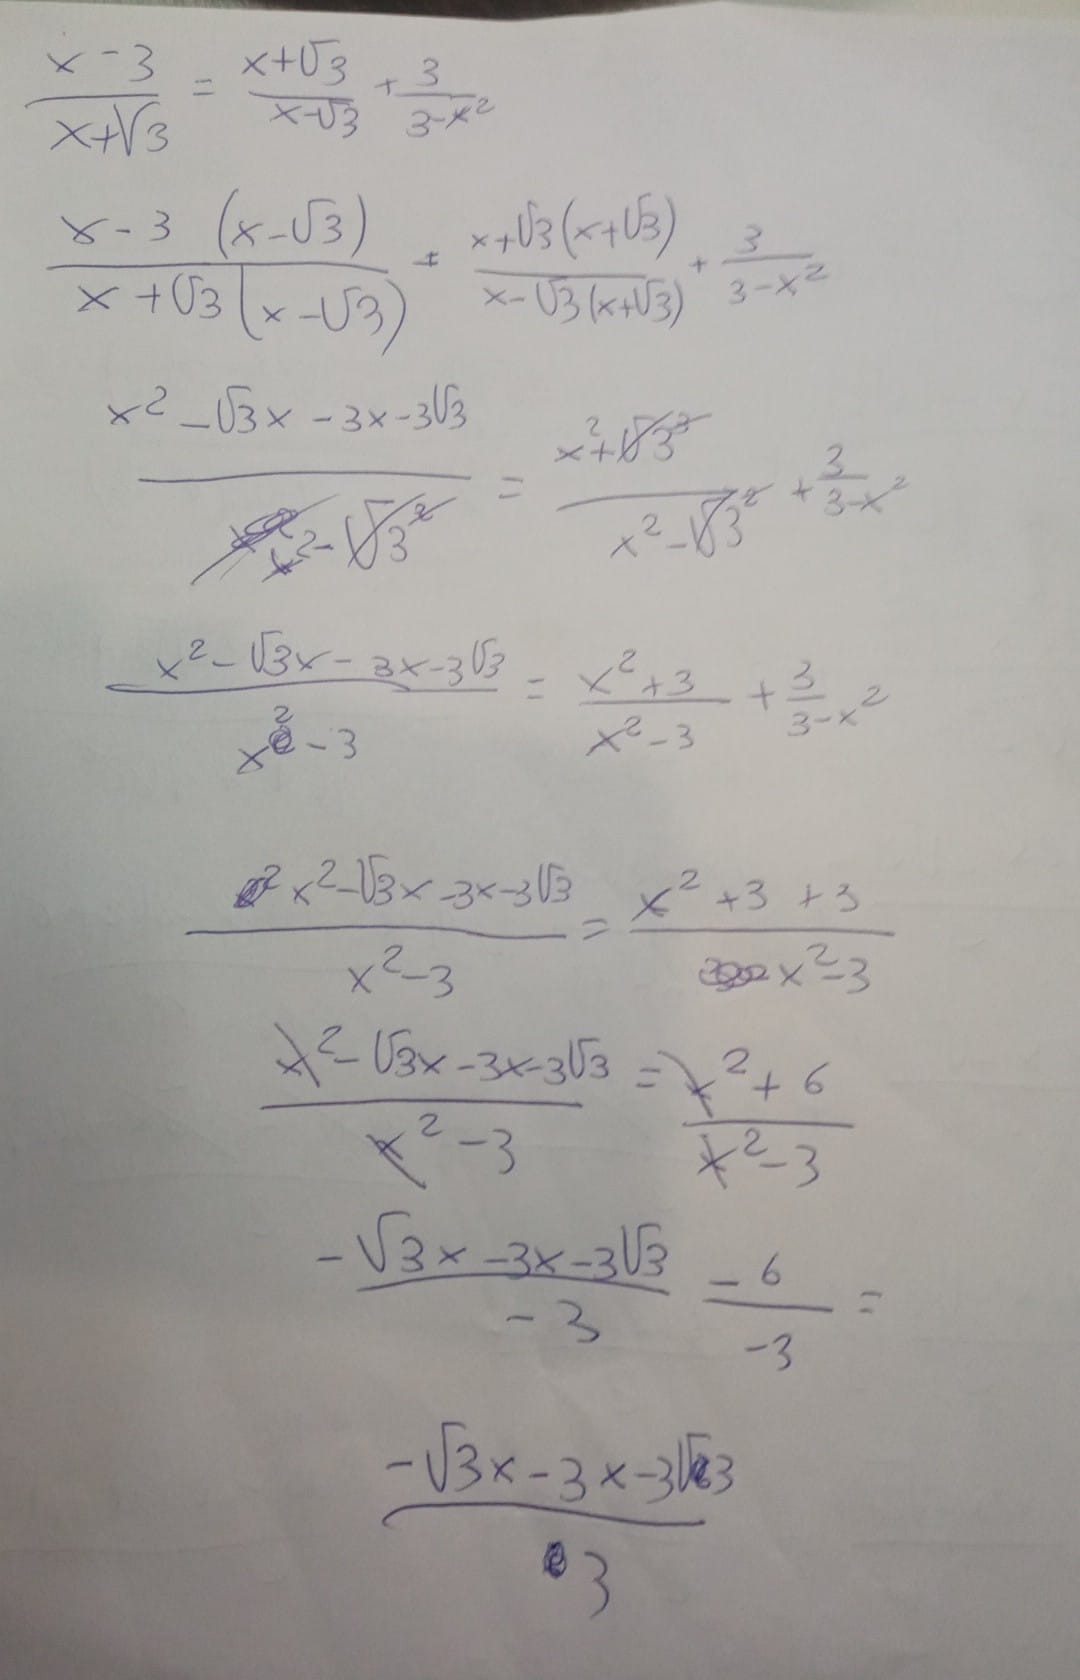 x-3/x+√3 = x+√3/x-√3 + 3/3-x²
x-3 (x-√3)/x+√3(x-√3) = x+√3(x+√3)/x-√3(x+√3) + 3/3-x²
x²-√3x-3x-3√3/x²-√3² = x²+√3²/x²-√3² + 3/3-x²
x²-√3x-3x-3√3/x²-3 = x²+3/x²-3 + 3/3-x²
x²-√3x-3x-3√3/x²-3 = x²+3+3/x²-3
x²-√3x-3x-3√3/x²-3 = x²+6/x²-3
-√3x-3x-3√3/-3 -6/-3 =
-√3x-3x-3√3/3